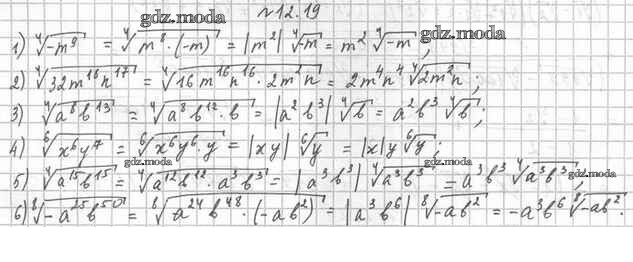 №12.19
gdz.moda
1) ∜(-m⁹) = ∜(m⁸·(-m)) = |m²| ∜(-m) = m² ∜(-m) ;
2) ∜(32m¹⁸n¹⁷) = ∜(16m¹⁶n¹⁶·2m²n) = 2m⁴n⁴ ∜(2m²n) ;
3) ∜(a⁸b¹³) = ∜(a⁸b¹²·b) = |a²b³| ∜b = a²b³ ∜b ;
4) ⁶√(x⁶y⁷) = ⁶√(x⁶y⁶·y) = |xy| ⁶√y = |x|y ⁶√y ;
gdz.moda gdz.moda
5) ∜(a¹⁵b¹⁵) = ∜(a¹²b¹²·a³b³) = |a³b³| ∜(a³b³) = a³b³ ∜(a³b³) ; gdz.moda
6) ⁸√(-a²⁵b⁵⁰) = ⁸√(a²⁴b⁴⁸·(-ab²)) = |a³b⁶| ⁸√(-ab²) = -a³b⁶ ⁸√(-ab²).